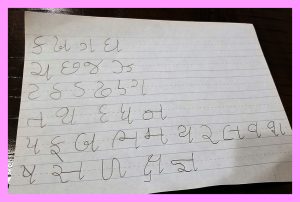 ક ખ ગ ઘ
ચ છ જ ઝ
ટ ઠ ડ ઢ ણ
ત થ દ ધ ન
પ ફ બ ભ મ ય ર લ વ શ
ષ સ ળ ક્ષ જ્ઞ